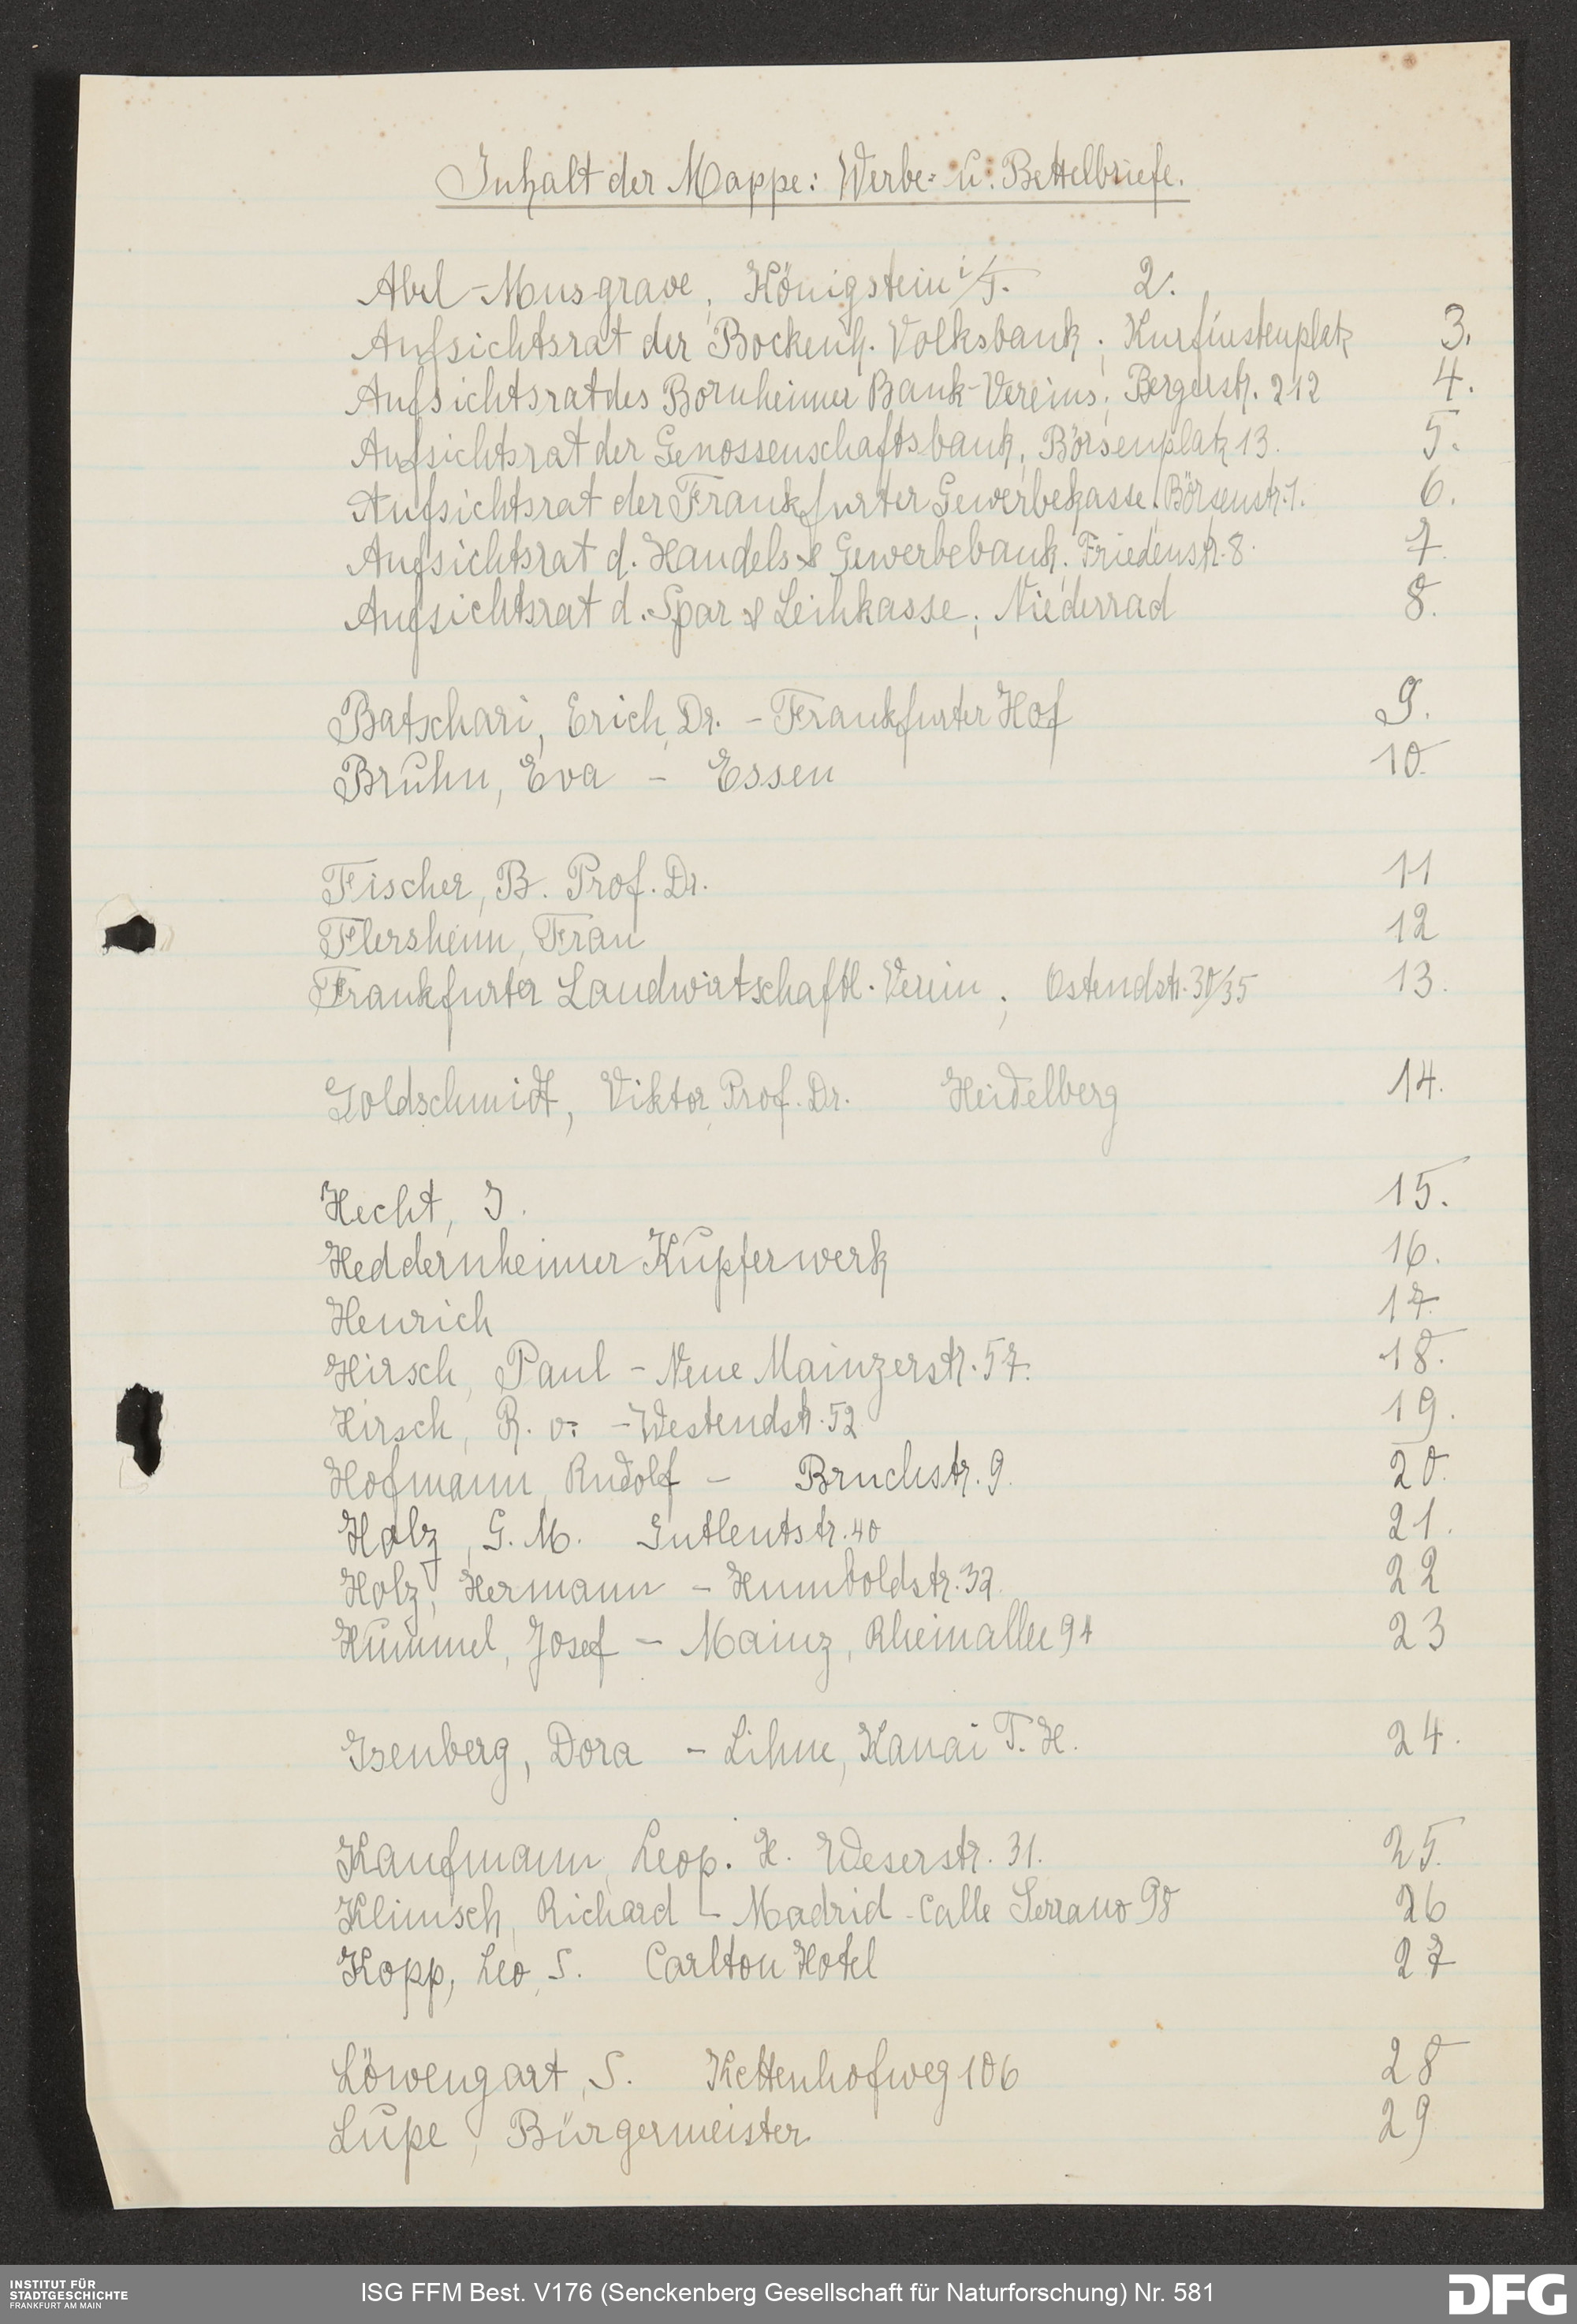 Inhalt der Mappe: Werbe= u. Bettelbriefe.
Abel-Musgrave, Königstein i/T. 2.
Aufsichtsrat der Bockenh. Volksbank; Kurfürstenplatz 3.
Aufsichtsrat des Bornheimer Bank-Vereins; Bergerstr. 212 4.
Aufsichtsrat der Genossenschaftsbank, Börsenplatz 13. 5.
Aufsichtsrat der Frankfurter Gewerbekasse. Börsenstr. 1. 6.
Aufsichtsrat d. Handels & Gewerbebank. Friedenstr. 8. 7.
Aufsichtsrat d. Spar & Leihkasse; Niederrad 8.
Batschari, Erich, Dr. - Frankfurter Hof 9.
Bruhn, Eva - Essen 10.
Fischer, B. Prof. Dr. 11
Flersheim, Frau 12
Frankfurter Landwirtschaftl. Verein; Ostendstr. 30/35 13.
Goldschmidt, Viktor, Prof. Dr. Heidelberg 14.
Hecht, J. 15.
Heddernheimer Kupferwerk 16.
Henrich 17.
Hirsch, Paul - Neue Mainzerstr. 57. 18.
Hirsch, R. v: - Westendstr. 52 19.
Hofmann, Rudolf - Bruchstr. 9. 20.
Holz, G. M. Gutleutstr. 40 21.
Holz, Hermann - Humboldstr. 32. 22
Hummel, Josef - Mainz, Rheinallee 94 23
Isenberg, Dora - Lihue, Kauai T. H. 24.
Kaufmann, Leop. H. Weserstr. 31. 25.
Klimsch, Richard - Madrid - Calle Serrano 98 26
Kopp, Leo, S. Carlton Hotel 27
Löwengart, S. Kettenhofweg 106 28
Lupe, Bürgermeister 29
INSTITUT FÜR
STADTGESCHICHTE
FRANKFURT AM MAIN
ISG FFM Best. V176 (Senckenberg Gesellschaft für Naturforschung) Nr. 581
DFG